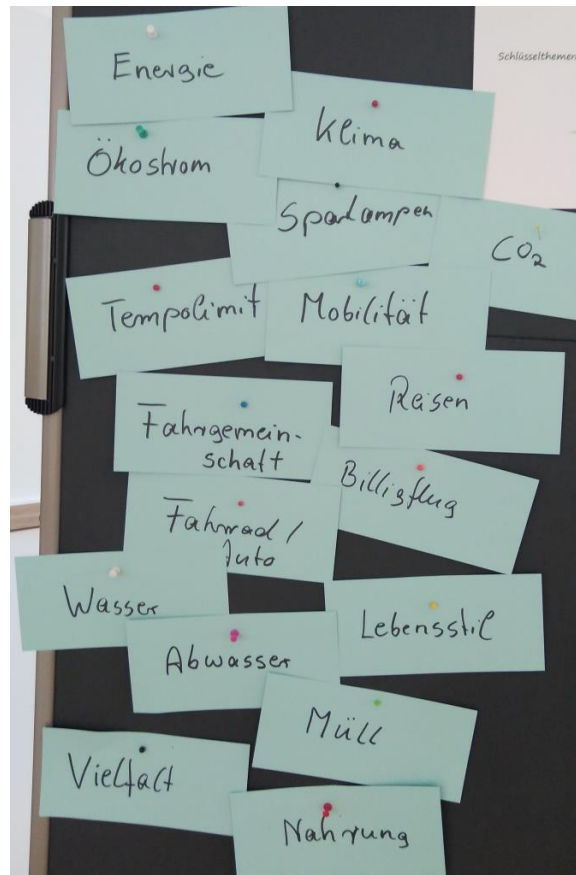 Schlüsselthemen
Energie
Klima
Ökostrom
Sparlampen
CO₂
Tempolimit
Mobilität
Reisen
Fahrgemein-
schaft
Billigflug
Fahrrad /
Auto
Wasser
Lebensstil
Abwasser
Müll
Vielfalt
Nahrung